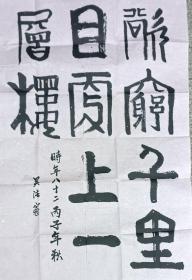 欲窮千里
目更上一
層樓
時年八十二丙子年秋